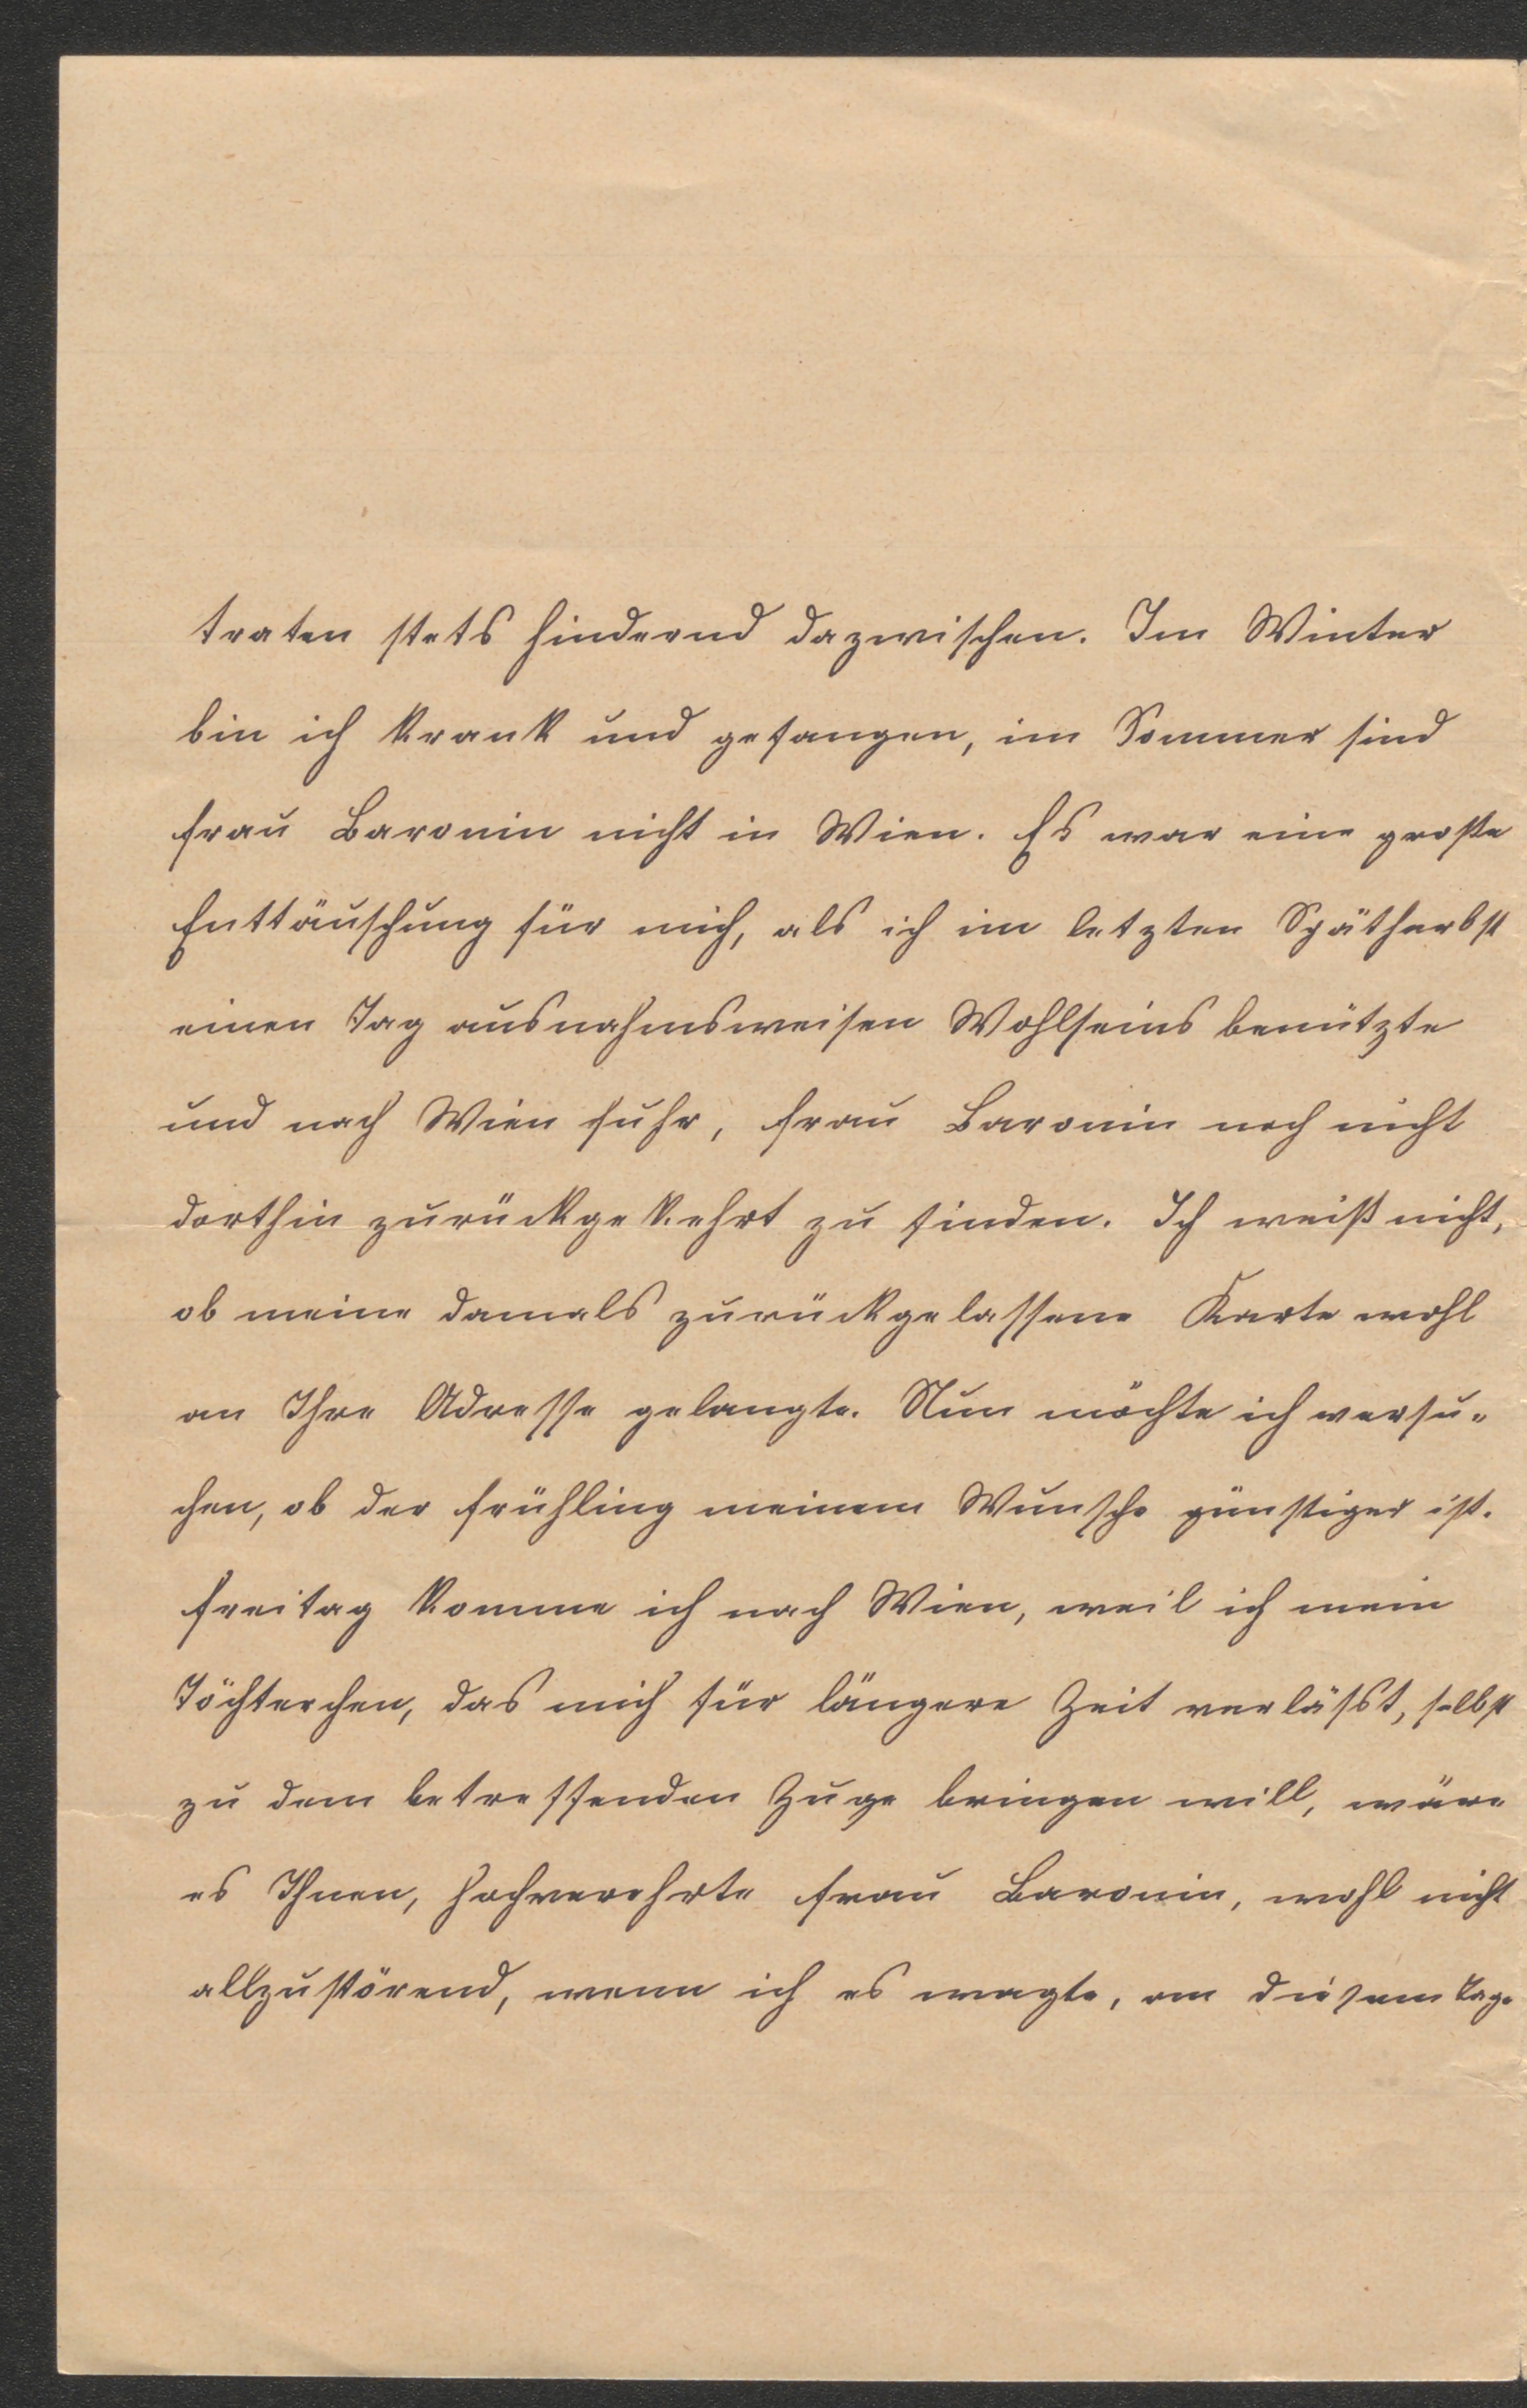 traten stets hindernd dazwischen. Im Winter
bin ich krank und gefangen, im Sommer sind
Frau Baronin nicht in Wien. Es war eine große
Enttäuschung für mich, als ich im letzten Spätherbst
einen Tag ausnahmsweisen Wohlseins benützte
und nach Wien fuhr, Frau Baronin noch nicht
dorthin zurückgekehrt zu finden. Ich weiß nicht,
ob meine damals zurückgelassene Karte wohl
an Ihre Adresse gelangte. Nun möchte ich versu-
chen, ob der Frühling meinem Wunsche günstiger ist.
Freitag komme ich nach Wien, weil ich mein
Töchterchen, das mich für längere Zeit verläßt, selbst
zu dem betreffenden Zuge bringen will, wäre
es Ihnen, hochverehrte Frau Baronin, wohl nicht
allzustörend, wenn ich es wagte, an diesem Tage